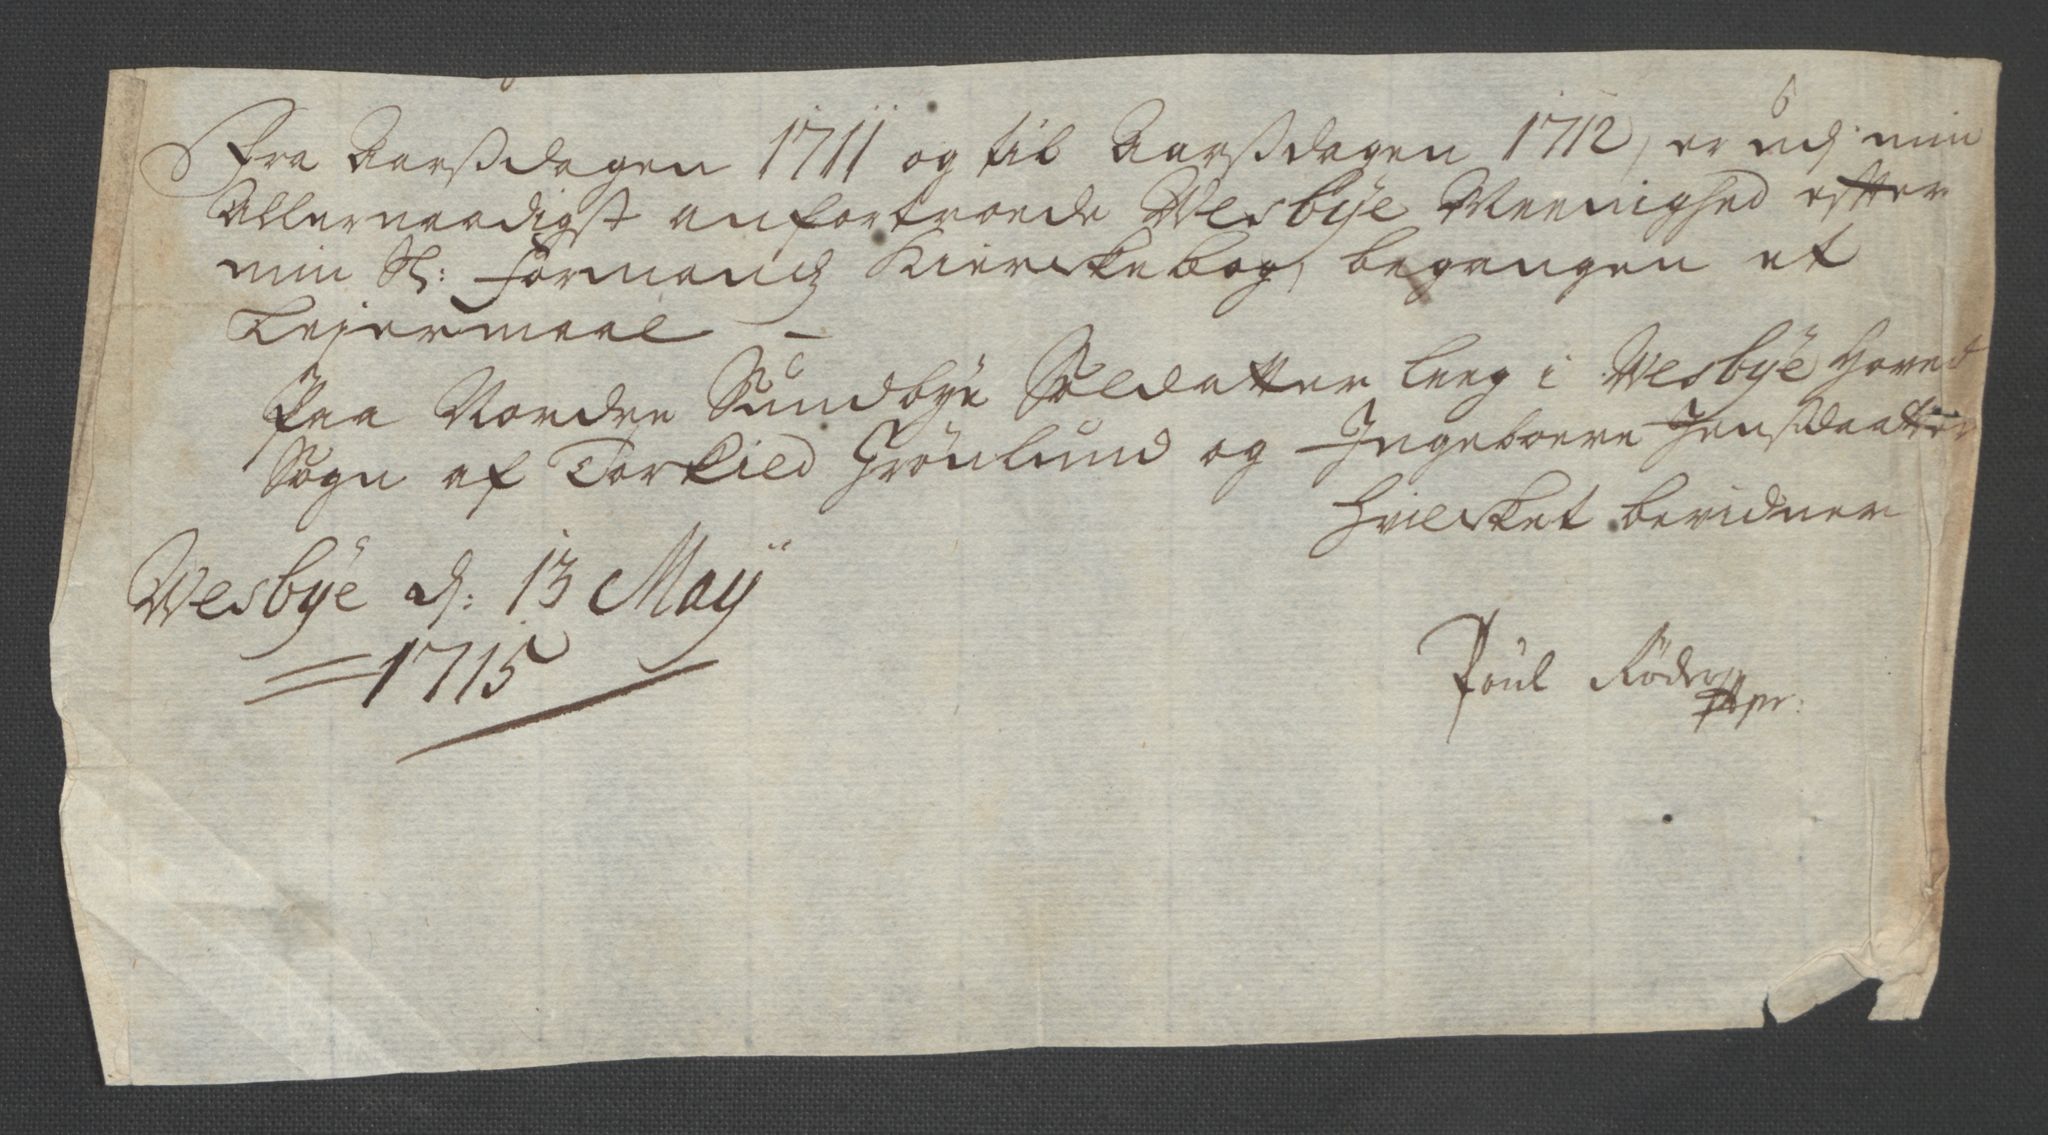 Fra Aarsdagen 1711 og til Aarsdagen 1712, er udj min
Allernaadigst anfortroede Wesbÿe Meenighed efter
min Sl: Formands Kierckebog, begangen et
Leiermaal –
Paa Nordre Sundbÿe Soldatter leeg i Wesbÿe Hoved
Sogn af Torkild Grönlund og Ingeboere Jensdaatter
Hvilcket bevidner
Wesbÿe d: 13 Maÿ
1715
Poul Röder